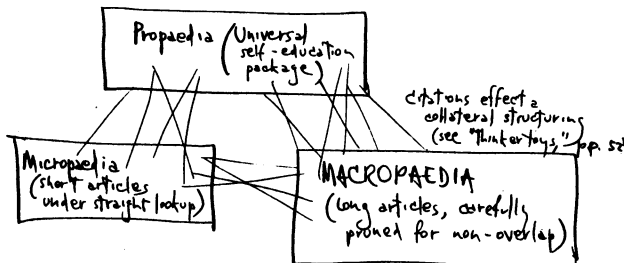 Propaedia (Universal
self-education
package)
citations effect a
collateral structuring
(see "Thinkertoys,"
pp. 52
Micropaedia
(short articles
under straight lookup)
MACROPAEDIA
(long articles, carefully
pruned for non-overlap)